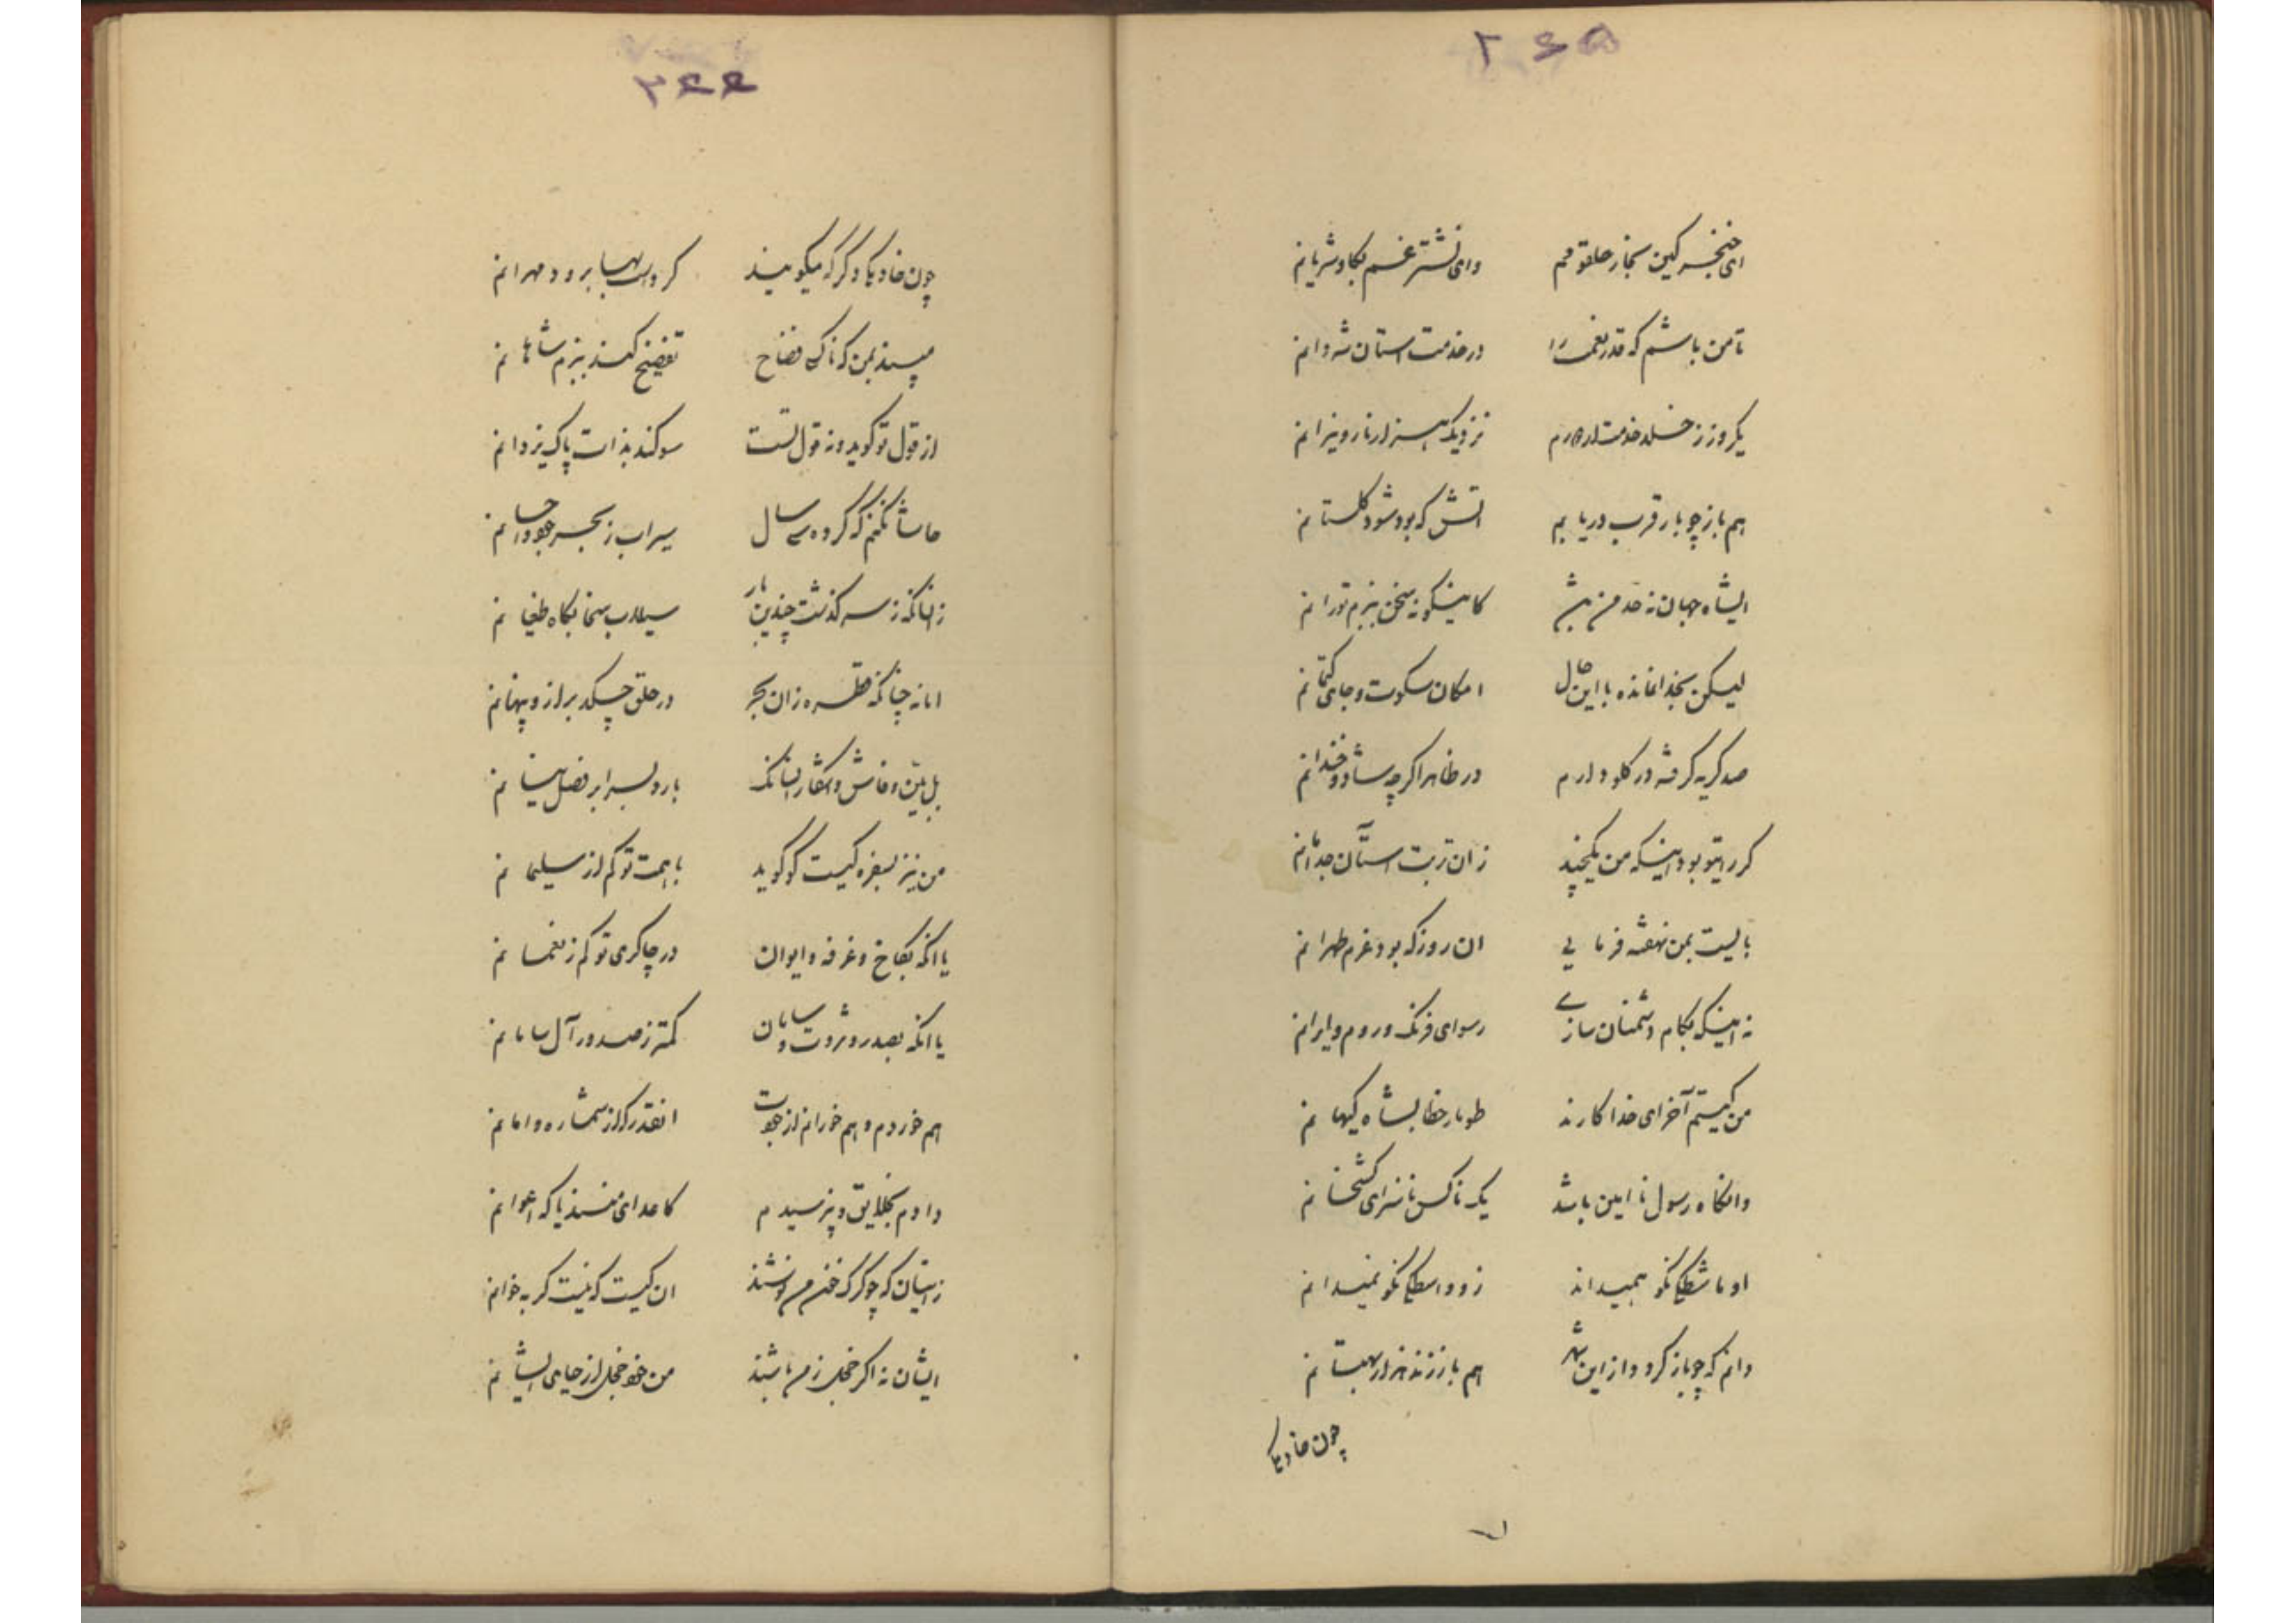 ۲۶۵
ای خنجر کین بخار حلقومم وای نشتر غم بکاو شریانم
تا من باشم که قدر نعمت را در خدمت آستان شه دانم
یکروز ز خلد خدمت ار دورم نزدیک هزار نار و نیرانم
هم باز چو بار قرب دریابم آتش که بود شود گلستانم
ایشاه جهان نه حد من بیش کاینگونه سخن ببزم تو رانم
لیکن بخدا نمانده با این حال امکان سکوت و جای کتمانم
صد گریه گرفته در گلو دارم در ظاهر اگر چه شاد و خندانم
گر رای تو بود اینکه من یکچند زان تربت آستان جدا مانم
بایست بمن نهفته فرمایی آن روز که بود عزم طهرانم
نه اینکه بکام دشمنان سازی رسوای فرنگ و روم و ایرانم
من کیستم آخر ای خدا کارند طومار خطا بشاه کیهانم
وانگاه رسول نا امین باشد یک ناکس ناسزای کشخانم
او ماشطگی نکو همیداند زو واسطگی نکو نمیدانم
دانم که چو باز گردد از این شهر هم باز زند هزار بهتانم
چون خاد یکا
۲۶۶
چون خاد یکا دگر که میگویند کرد است بها برود مهرانم
مپسند بمن که ناکسی فضاح تفضیح کند ببزم شاهانم
از قول تو گوید و نه قول تست سوگند بذات پاک یزدانم
حاشا نکنم که کرده سی سال سیراب ز بحر جود و احسانم
زانسانکه ز سر گذشت چندین بار سیلاب سخا بگاه طغیانم
اما نه چنانکه قطره زان بحر در حلق چکد براز و پنهانم
بل بین و فاش و آشکار انسانک بارد بسر ابر فضل نیسانم
من نیز بسفره کیست گو گوید با همت تو کم از سلیمانم
یا آنکه بکاخ و غرفه و ایوان در چاکری تو کم ز نعمانم
یا آنکه بصدر و ثروت و سامان کمتر ز صدور آل سامانم
هم خوردم و هم خورانم از جودت آنقدر که از شماره وامانم
دادم بخلایق و نپرسیدم کاعدای منند یا که اعوانم
زینان که چو گرگ خون من نوشند آن کیست که نیست گربه خوانم
ایشان نه اگر خجل ز من باشند من خود خجل از حیای ایشانم